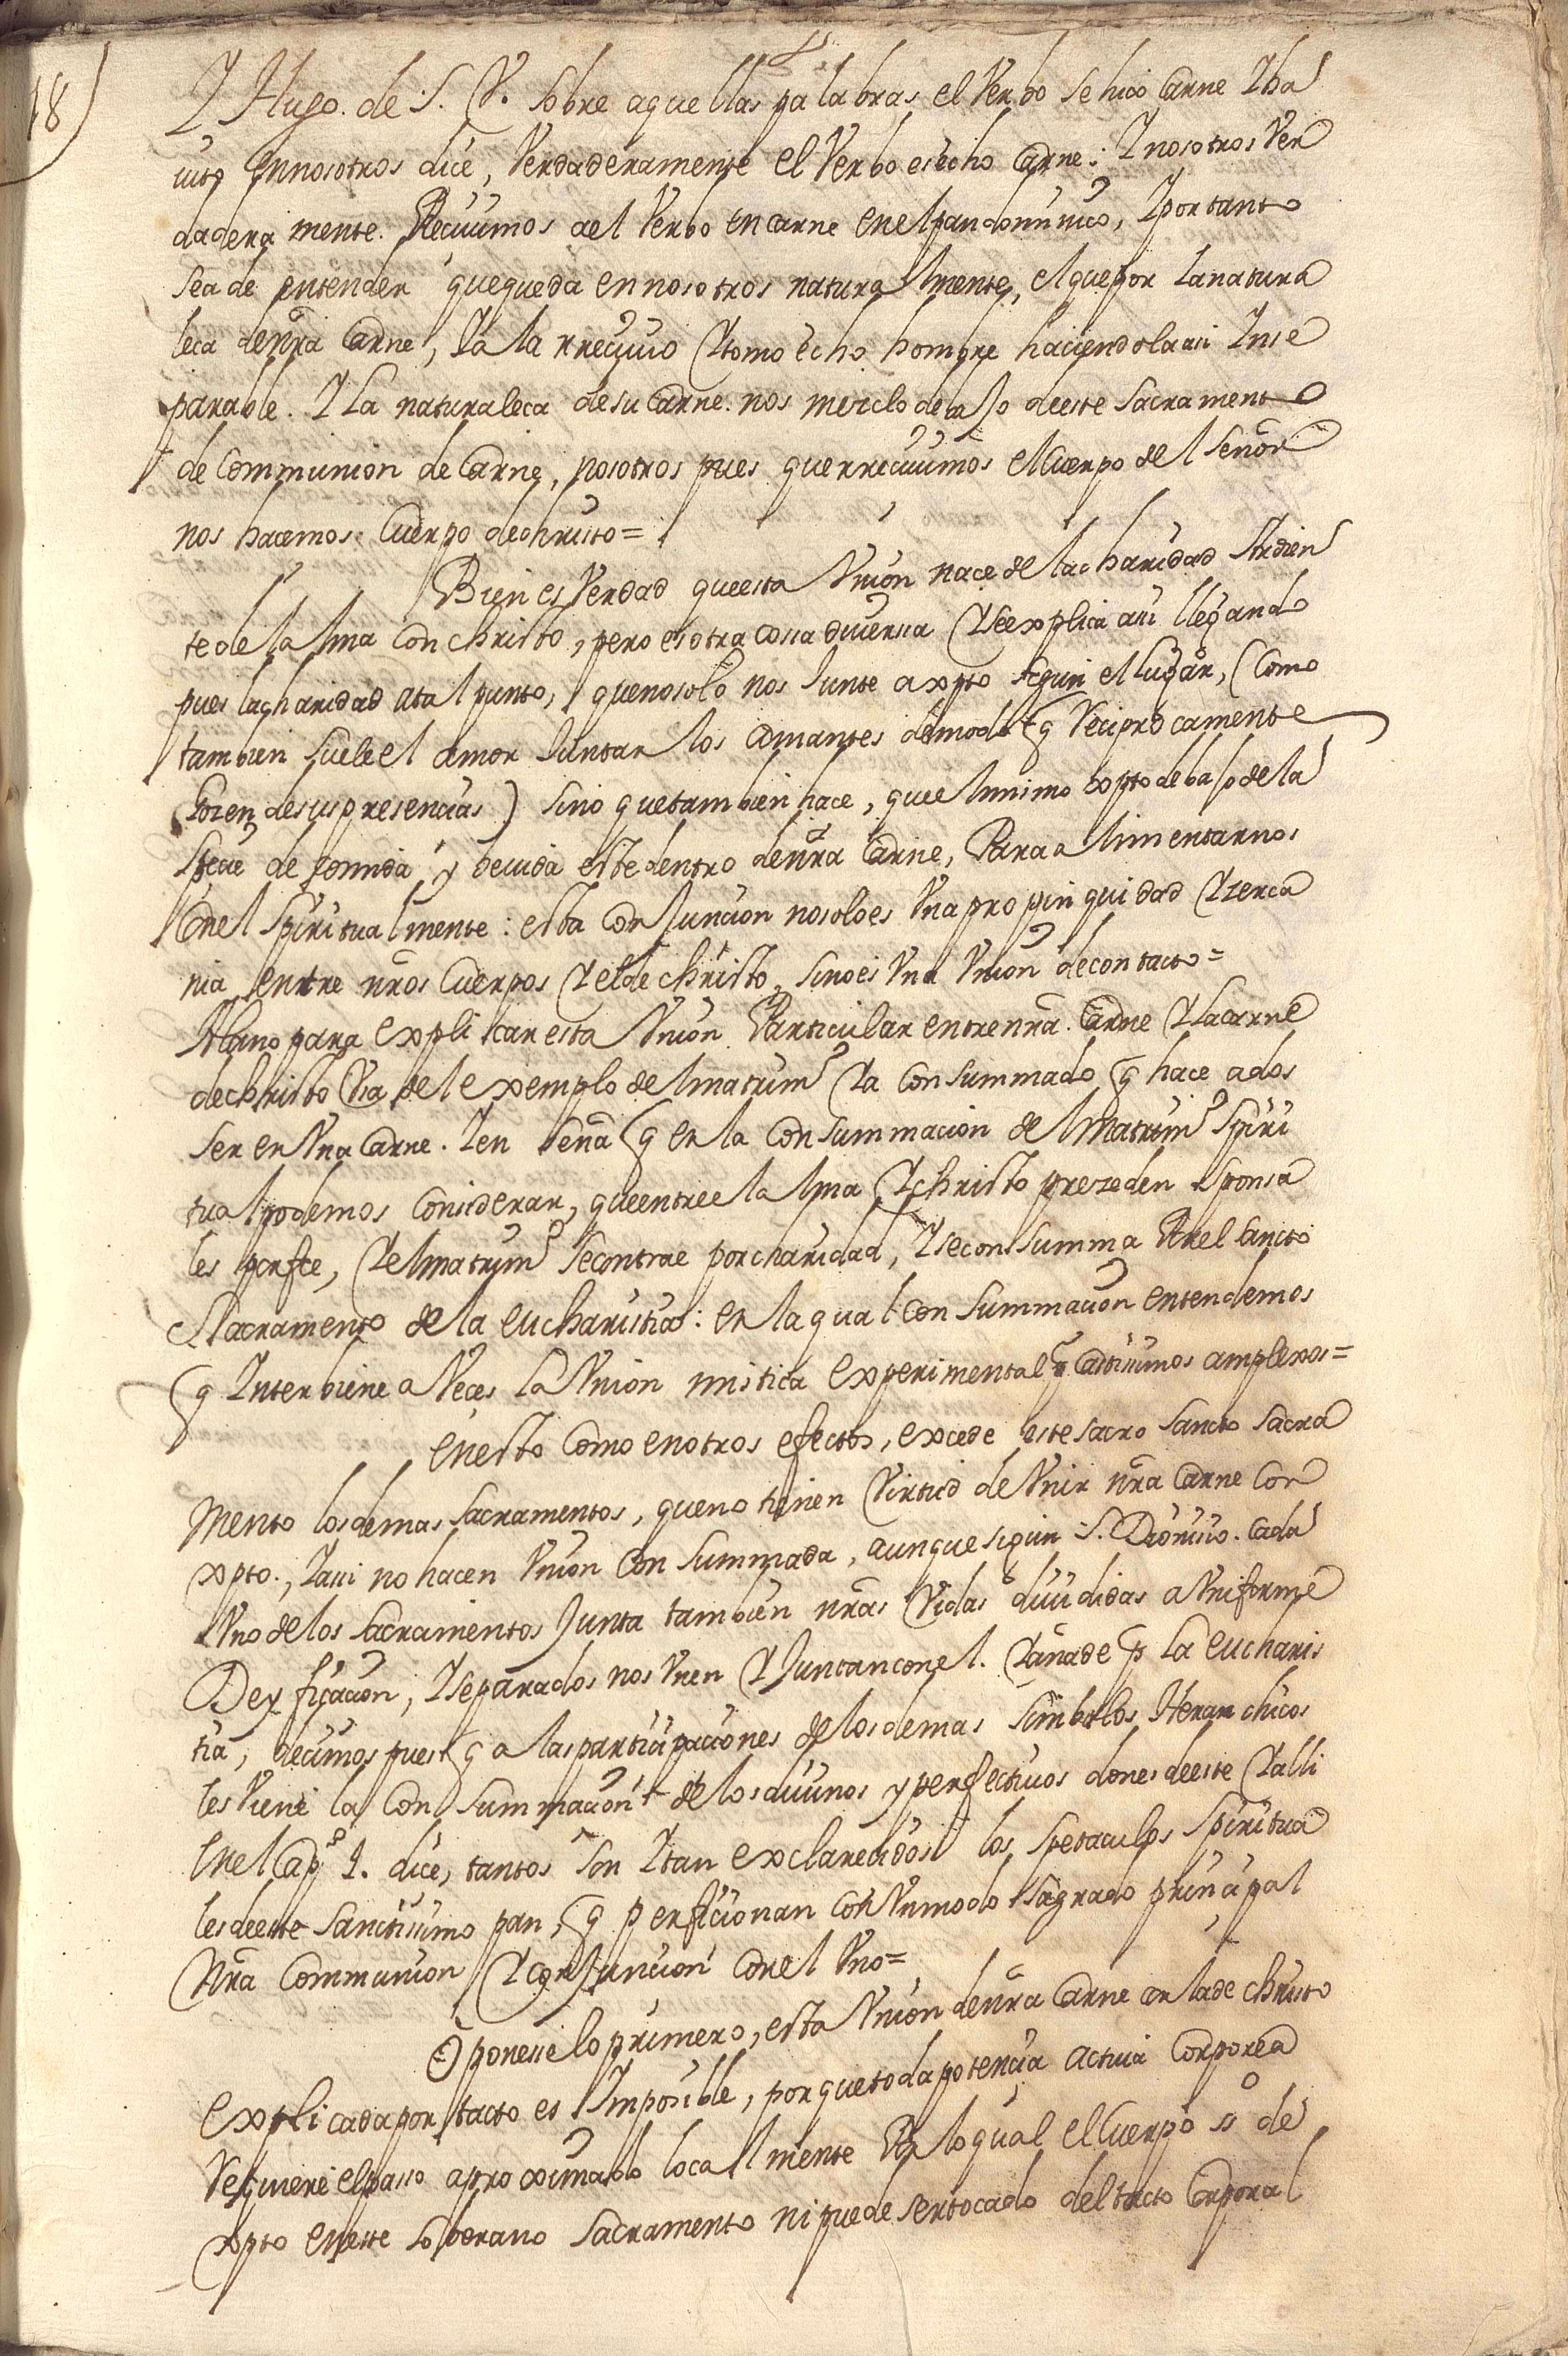 18)
Y Hugo. de S. V. sobre aquellas palabras el Verbo se hiço Carne Y ha
uitó en nosotros dice, Verdaderamente el Verbo es echo Carne: Y nosotros Ver
dadera mente. Recuimos del Verbo en carne en el pan dominico, Y por tanto
sea de entender que queda en nosotros natura lmente, el que por la natura
leça de nrã Carne, Ya la rreciuio Y tomo echo hombre haciendola asi Inse
parable. Y la naturaleça de su Carne. nos mezclo debaJo de este sacramento
de communion de Carne, nosotros pues que rreciuimos el Cuerpo del señor
nos hacemos Cuerpo de christo=
Bien es Verdad que esta Vnion nace de la charidad Ardien
te del alma con christo, pero es otra cosa diuersa Y se explica asi llegando
pues la charidad a tal punto, que no solo nos Junte a xpto segun el lugar, (Como
tambien suele el amor Juntar los amantes de modo q Reciprocamente
Gozen de sus presencias) sino que tambien hace, que el mismo xpto debaJo de la
specie de comida, y beuida este dentro de nrã Carne, Para alimentarnos
Con el spiritualmente: esta conJuncion no solo es Vna propinquidad Y zerca
nia, entre nrõs Cuerpos Y el de christo, sino es Vna Vnion de contacto=
Alano para expli car esta Vnion Particular entre nrã. Carne Y la carne
de christo Vsa del exemplo del matrimº Ya consummado q hace a dos
ser en Vna Carne. Y enseña q en la Consummacion del matrimº spiri
tual podemos Considerar, que entre el alma Y christo prezeden sponsa
les por fee, Y el matrimº se contrae por charidad, Y se consumma Por el sancto
Sacramento de la eucharistia: en la qual consummacion entendemos
q Interbiene a Veces la Vnion mistica experimental y Castissimos amplexos=
en esto como en otros efectos, excede este sacro sancto sacra
mento los demas sacramentos, que no tienen Virtud de Vnir nrã Carne con
xpto., Y asi no hacen Vnion Consummada, aunque segun S. Dionisio. cada
Vno de los sacramentos Junta tambien nrãs Vidas diuididas a Vniforme
Deyficacion, Y separados nos Vnen Y Juntan con el. Y añade p la eucharis
tia, decimos pues q a las participaciones de los demas simbolos Hierarchicos
les Viene la Consummacion de los diuinos y perfectiuos dones de este Y alli
en el Capº 1. dice, tantos son Y tan exclarecidos los spetaculos spiritua
les de este sanctissimo pan, q perficionan con Vn modo sagrado principal
Nrã Communion Y conJuncion con el Vno=
Oponese lo primero, esta Vnion de nrã Carne con la de christo
explicada por tacto es Imposible, porque toda potencia actiua corporea
Requiere el paso aproximado localmente Por lo qual el cuerpo sº de
xpto en este soberano sacramento ni puede ser tocado del tacto Corporal